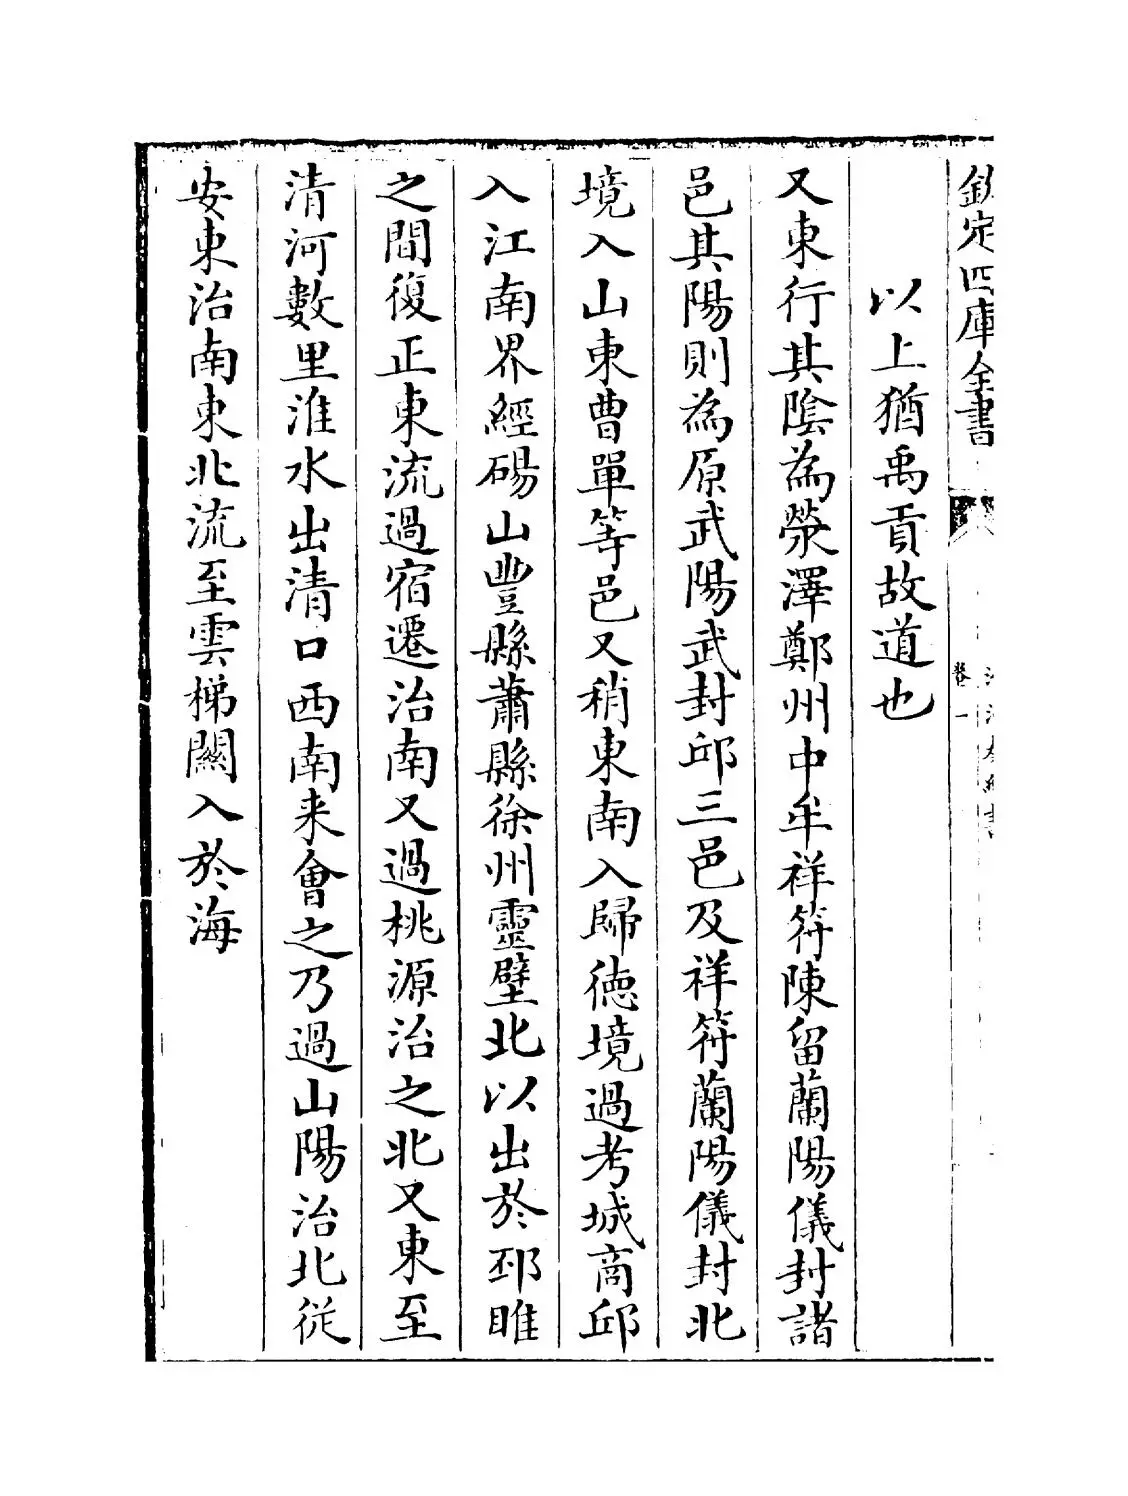 欽定四庫全書
卷一
以上猶禹貢故道也
又東行其陰為滎澤鄭州中牟祥符陳留蘭陽儀封諸
邑其陽則為原武陽武封邱三邑及祥符蘭陽儀封北
境入山東曹單等邑又稍東南入歸徳境過考城商邱
入江南界經碭山豐縣蕭縣徐州靈壁北以出於邳睢
之間復正東流過宿遷治南又過桃源治之北又東至
清河數里淮水出清口西南来會之乃過山陽治北従
安東治南東北流至雲梯關入於海